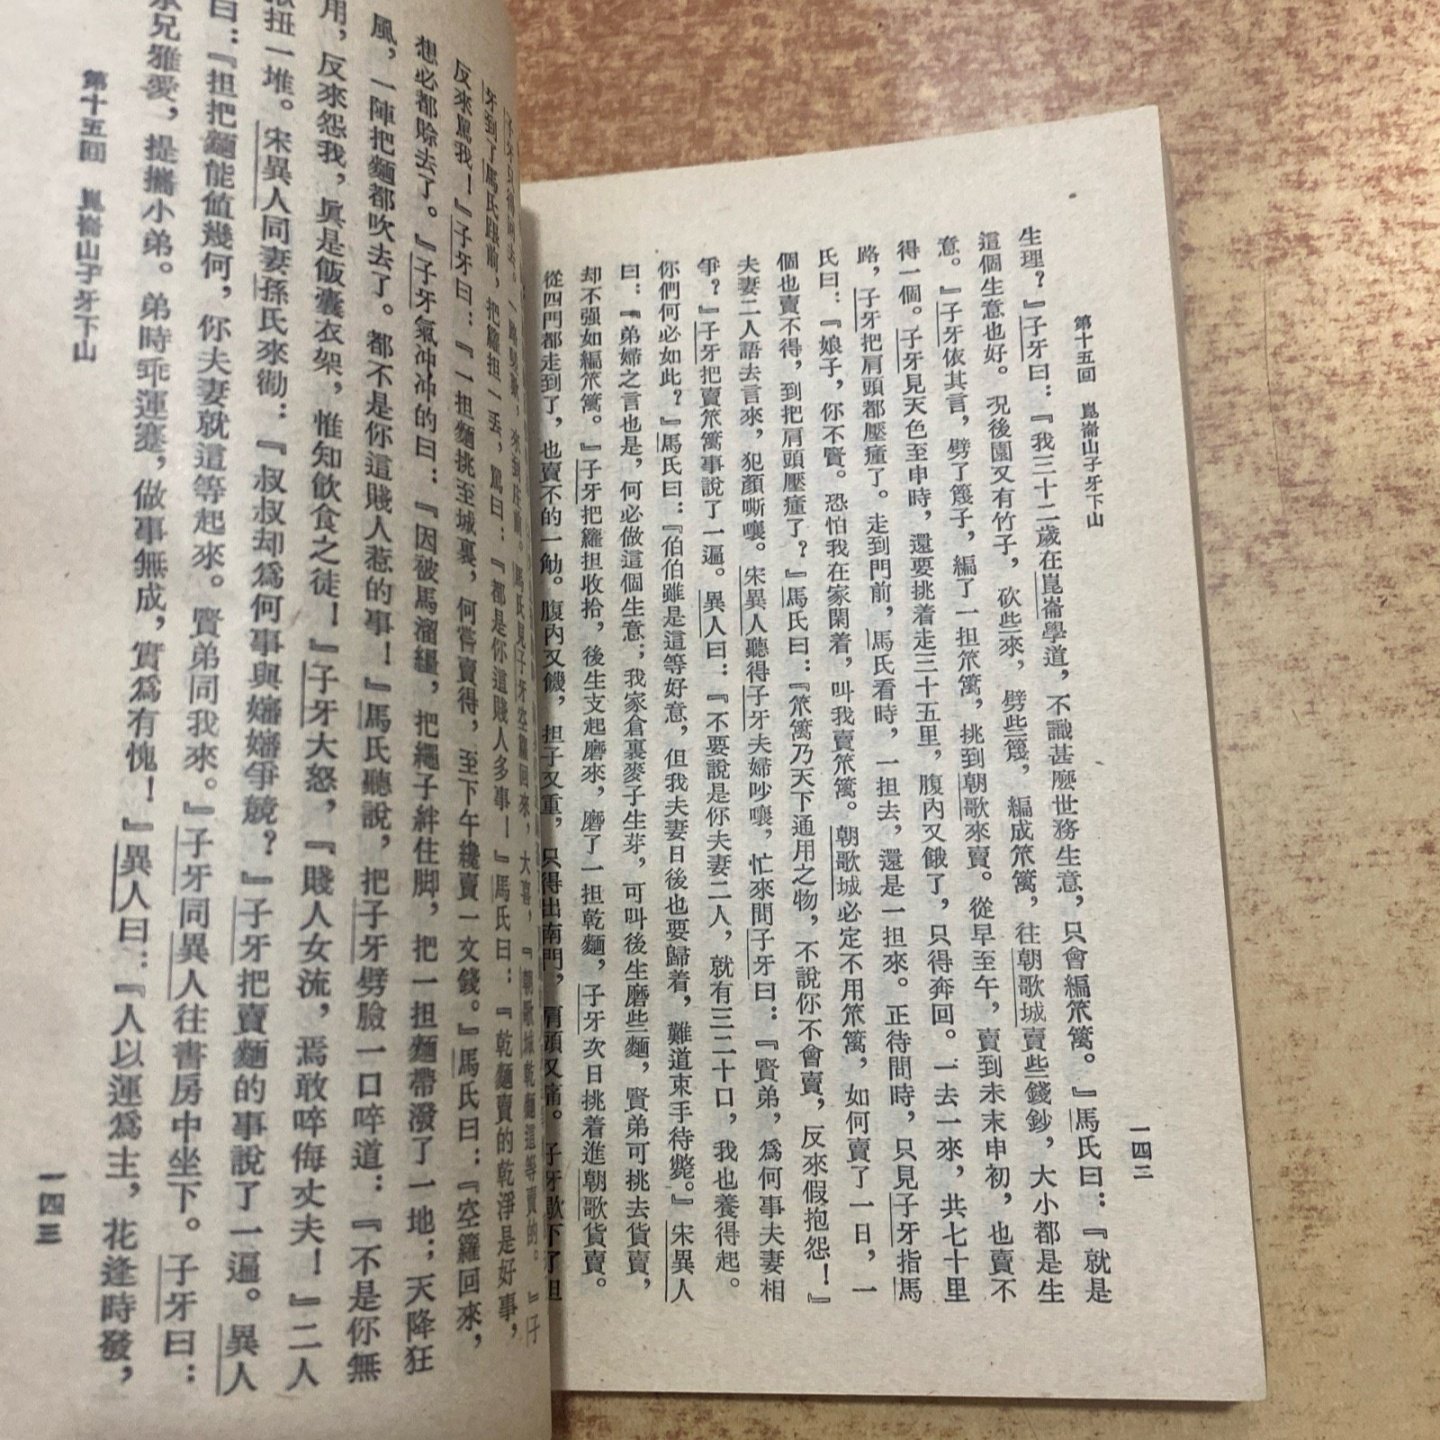 第十五回 崑崙山子牙下山 一四二
生理？』子牙曰：『我三十二歲在崑崙學道，不識甚麼世務生意，只會編笊篱。』馬氏曰：『就是
這個生意也好。況後園又有竹子，砍些來，劈些篾，編成笊篱，往朝歌城賣些錢鈔，大小都是生
意。』子牙依其言，劈了篾子，編了一担笊篱，挑到朝歌來賣。從早至午，賣到未末申初，也賣不
得一個。子牙見天色至申時，還要挑着走三十五里，腹內又餓了，只得奔回。一去一來，共七十里
路，子牙把肩頭都壓瘇了。走到門前，馬氏看時，一担去，還是一担來。正待問時，只見子牙指馬
氏曰：『娘子，你不賢。恐怕我在家閑着，叫我賣笊篱。朝歌城必定不用笊篱，如何賣了一日，一
個也賣不得，到把肩頭壓瘇了？』馬氏曰：『笊篱乃天下通用之物，不說你不會賣，反來假抱怨！』
夫妻二人語去言來，犯顏嘶嚷。宋異人聽得子牙夫婦吵嚷，忙來問子牙曰：『賢弟，爲何事夫妻相
爭？』子牙把賣笊篱事說了一遍。異人曰：『不要說是你夫妻二人，就有三二十口，我也養得起。
你們何必如此？』馬氏曰：『伯伯雖是這等好意，但我夫妻日後也要歸着，難道束手待斃。』宋異人
曰：『弟婦之言也是，何必做這個生意；我家倉裏麥子生芽，可叫後生磨些麵，賢弟可挑去貨賣，
却不强如編笊篱。』子牙把籮担收拾，後生支起磨來，磨了一担乾麵，子牙次日挑着進朝歌貨賣。
從四門都走到了，也賣不的一觔。腹內又饑，担子又重，只得出南門，肩頭又痛。子牙歇下了担
馬氏見子牙空籮回來，大喜，『朝歌城乾麵這等賣的。』子
牙到了馬氏跟前，把籮担一丢，駡曰：『都是你這賤人多事！』馬氏曰：『乾麵賣的乾淨是好事，
反來駡我！』子牙曰：『一担麵挑至城裏，何嘗賣得，至下午纔賣一文錢。』馬氏曰：『空籮回來，
想必都賒去了。』子牙氣冲冲的曰：『因被馬溜韁，把繩子絆住脚，把一担麵帶潑了一地；天降狂
風，一陣把麵都吹去了。都不是你這賤人惹的事！』馬氏聽說，把子牙劈臉一口啐道：『不是你無
用，反來怨我，眞是飯囊衣架，惟知飲食之徒！』子牙大怒，『賤人女流，焉敢啐侮丈夫！』二人
扭一堆。宋異人同妻孫氏來勸：『叔叔却爲何事與嬸嬸爭競？』子牙把賣麵的事說了一遍。異人
曰：『担把麵能值幾何，你夫妻就這等起來。賢弟同我來。』子牙同異人往書房中坐下。子牙曰：
兄雅愛，提攜小弟。弟時乖運蹇，做事無成，實爲有愧！』異人曰：『人以運爲主，花逢時發，
第十五回 崑崙山子牙下山 一四三